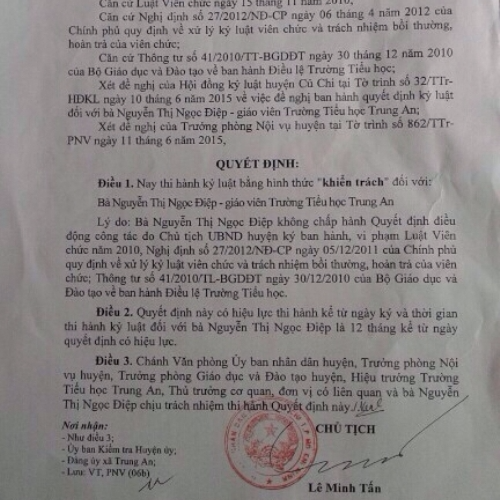 Căn cứ Luật Viên chức ngày 15 tháng 11 năm 2010;
Căn cứ Nghị định số 27/2012/NĐ-CP ngày 06 tháng 4 năm 2012 của
Chính phủ quy định về xử lý kỷ luật viên chức và trách nhiệm bồi thường,
hoàn trả của viên chức;
Căn cứ Thông tư số 41/2010/TT-BGDĐT ngày 30 tháng 12 năm 2010
của Bộ Giáo dục và Đào tạo về ban hành Điều lệ Trường Tiểu học;
Xét đề nghị của Hội đồng kỷ luật huyện Củ Chi tại Tờ trình số 32/TTr-
HĐKL ngày 10 tháng 6 năm 2015 về việc đề nghị ban hành quyết định kỷ luật
đối với bà Nguyễn Thị Ngọc Điệp - giáo viên Trường Tiểu học Trung An;
Xét đề nghị của Trưởng phòng Nội vụ huyện tại Tờ trình số 862/TTr-
PNV ngày 11 tháng 6 năm 2015,
QUYẾT ĐỊNH:
Điều 1. Nay thi hành kỷ luật bằng hình thức "khiển trách" đối với:
Bà Nguyễn Thị Ngọc Điệp - giáo viên Trường Tiểu học Trung An
Lý do: Bà Nguyễn Thị Ngọc Điệp không chấp hành Quyết định điều
động công tác do Chủ tịch UBND huyện ký ban hành, vi phạm Luật Viên
chức năm 2010, Nghị định số 27/2012/NĐ-CP ngày 05/12/2011 của Chính phủ
quy định về xử lý kỷ luật viên chức và trách nhiệm bồi thường, hoàn trả của viên
chức; Thông tư số 41/2010/TL-BGDĐT ngày 30/12/2010 của Bộ Giáo dục và
Đào tạo về ban hành Điều lệ Trường Tiểu học.
Điều 2. Quyết định này có hiệu lực thi hành kể từ ngày ký và thời gian
thi hành kỷ luật đối với bà Nguyễn Thị Ngọc Điệp là 12 tháng kể từ ngày
quyết định có hiệu lực.
Điều 3. Chánh Văn phòng Ủy ban nhân dân huyện, Trưởng phòng Nội
vụ huyện, Trưởng phòng Giáo dục và Đào tạo huyện, Hiệu trưởng Trường
Tiểu học Trung An, Thủ trưởng cơ quan, đơn vị có liên quan và bà Nguyễn
Thị Ngọc Điệp chịu trách nhiệm thi hành Quyết định này./
Nơi nhận:
- Như điều 3;
- Ủy ban Kiểm tra Huyện ủy;
- Đảng ủy xã Trung An;
- Lưu: VT, PNV (06b)
CHỦ TỊCH
Lê Minh Tấn